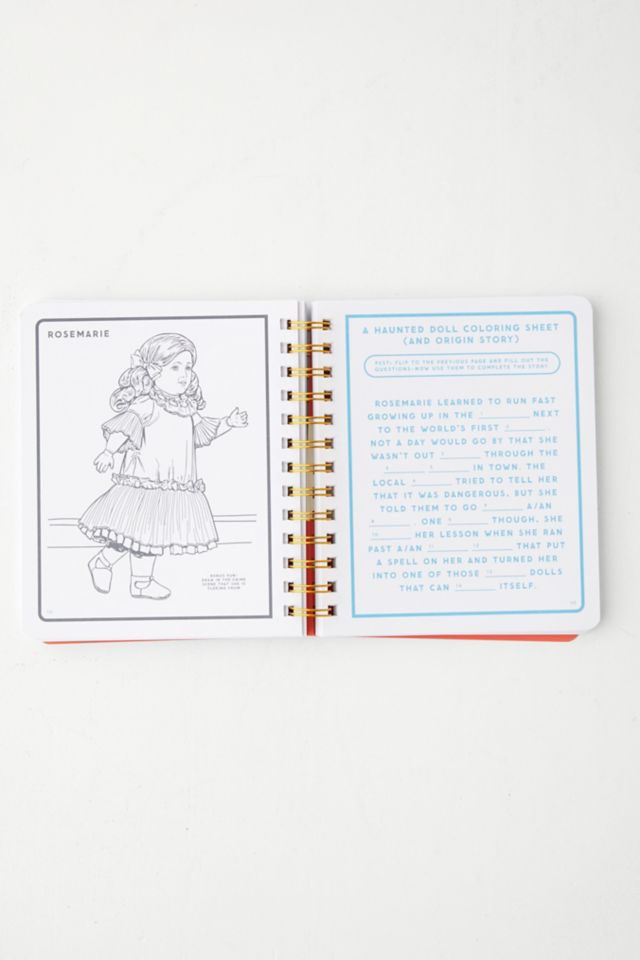 ROSEMARIE
BONUS FUN:
DRAW IN THE CRIME
SCENE THAT SHE IS
FLEEING FROM
A HAUNTED DOLL COLORING SHEET
(AND ORIGIN STORY)
PSST: FLIP TO THE PREVIOUS PAGE AND FILL OUT THE
QUESTIONS—NOW USE THEM TO COMPLETE THE STORY
ROSEMARIE LEARNED TO RUN FAST
GROWING UP IN THE 1 NEXT
TO THE WORLD'S FIRST 2 .
NOT A DAY WOULD GO BY THAT SHE
WASN'T OUT 3 THROUGH THE
4 5 IN TOWN. THE
LOCAL 6 TRIED TO TELL HER
THAT IT WAS DANGEROUS, BUT SHE
TOLD THEM TO GO 7 A/AN
8 . ONE 9 THOUGH, SHE
10 HER LESSON WHEN SHE RAN
PAST A/AN 11 12 THAT PUT
A SPELL ON HER AND TURNED HER
INTO ONE OF THOSE 13 DOLLS
THAT CAN 14 ITSELF.